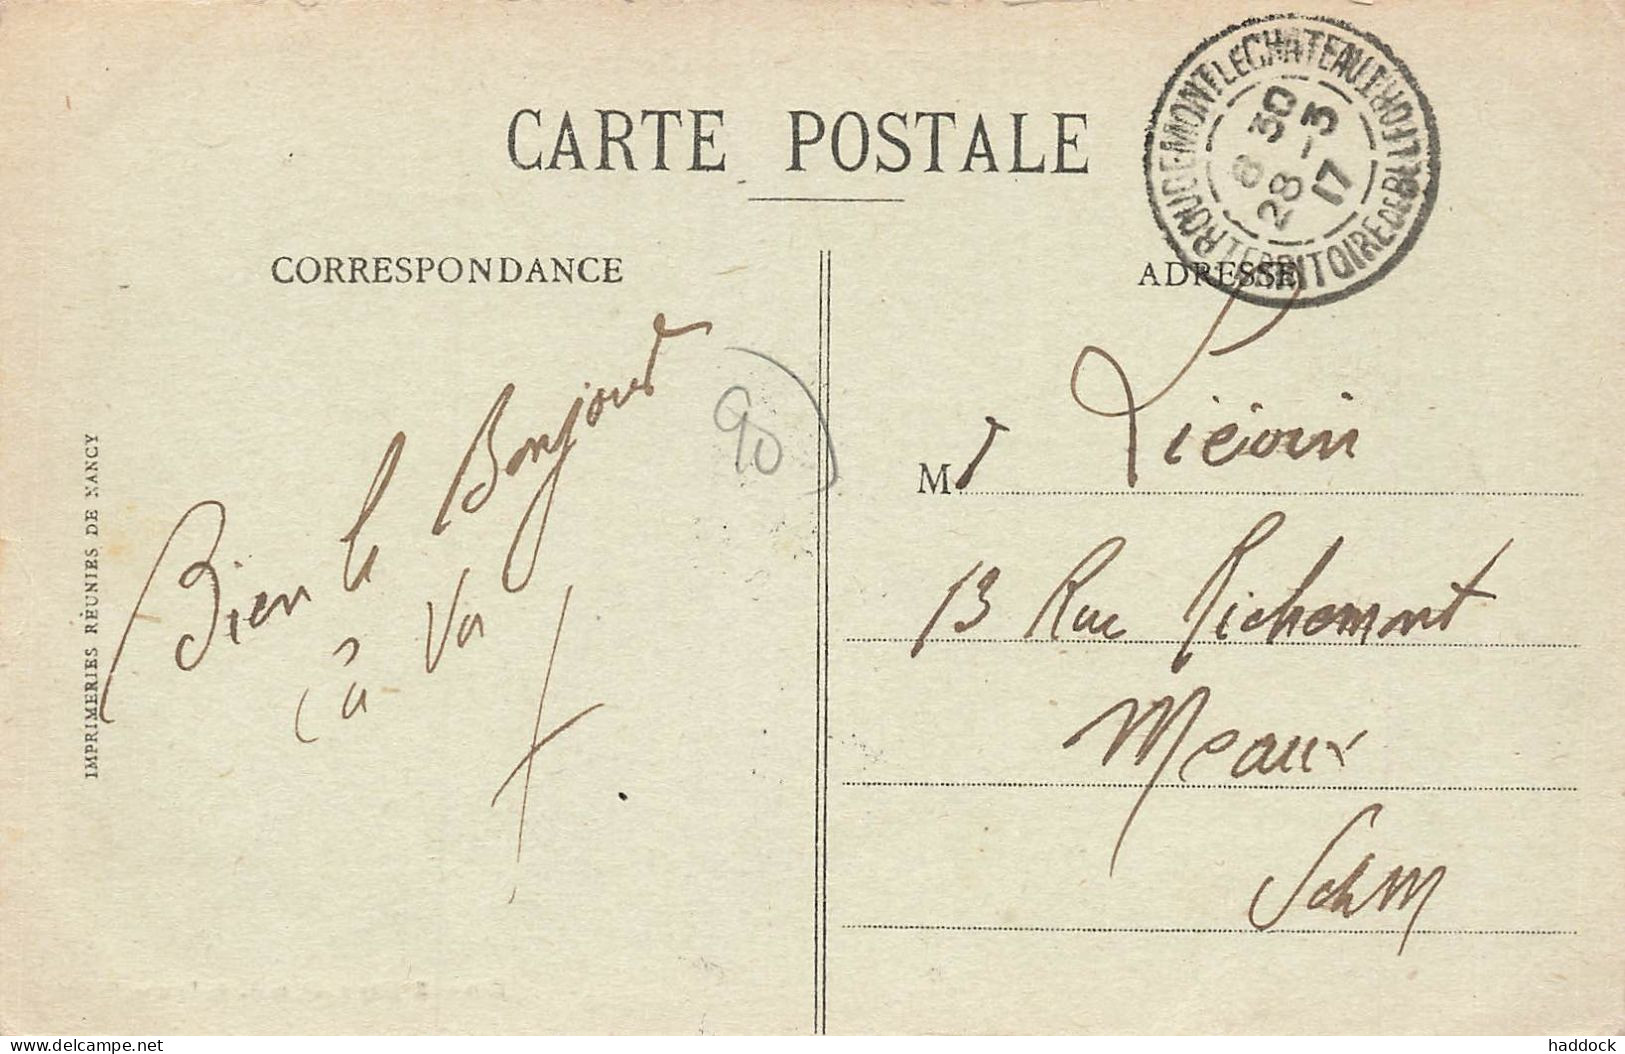 CARTE POSTALE
CORRESPONDANCE
ADRESSE
ROUGEMONT LE CHATEAU
TERRITOIRE DE BELFORT
8 30
28 - 3
17
Bien le Bonjour
ça va
90
Mr Liévin
13 Rue Richemont
Meaux
S et M
IMPRIMERIES RÉUNIES DE NANCY
delcampe.net
haddock